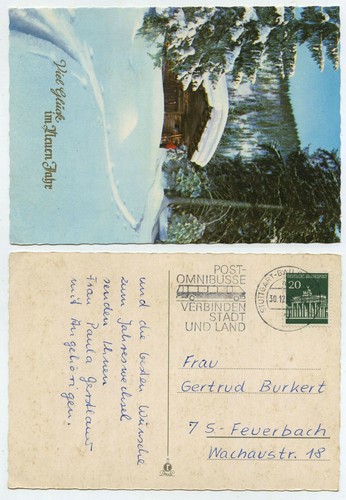 Viel Glück
im Neuen Jahre
und die besten Wünsche
zum Jahreswechsel
senden Ihnen
Frau Paula
mit Angehörigen.
POST-
OMNIBUSSE
VERBINDEN
STADT
UND LAND
STUTTGART-BAD
30.12.
DEUTSCHE BUNDESPOST
20
Frau
Gertrud Burkert
7 S-Feuerbach
Wachaustr. 18